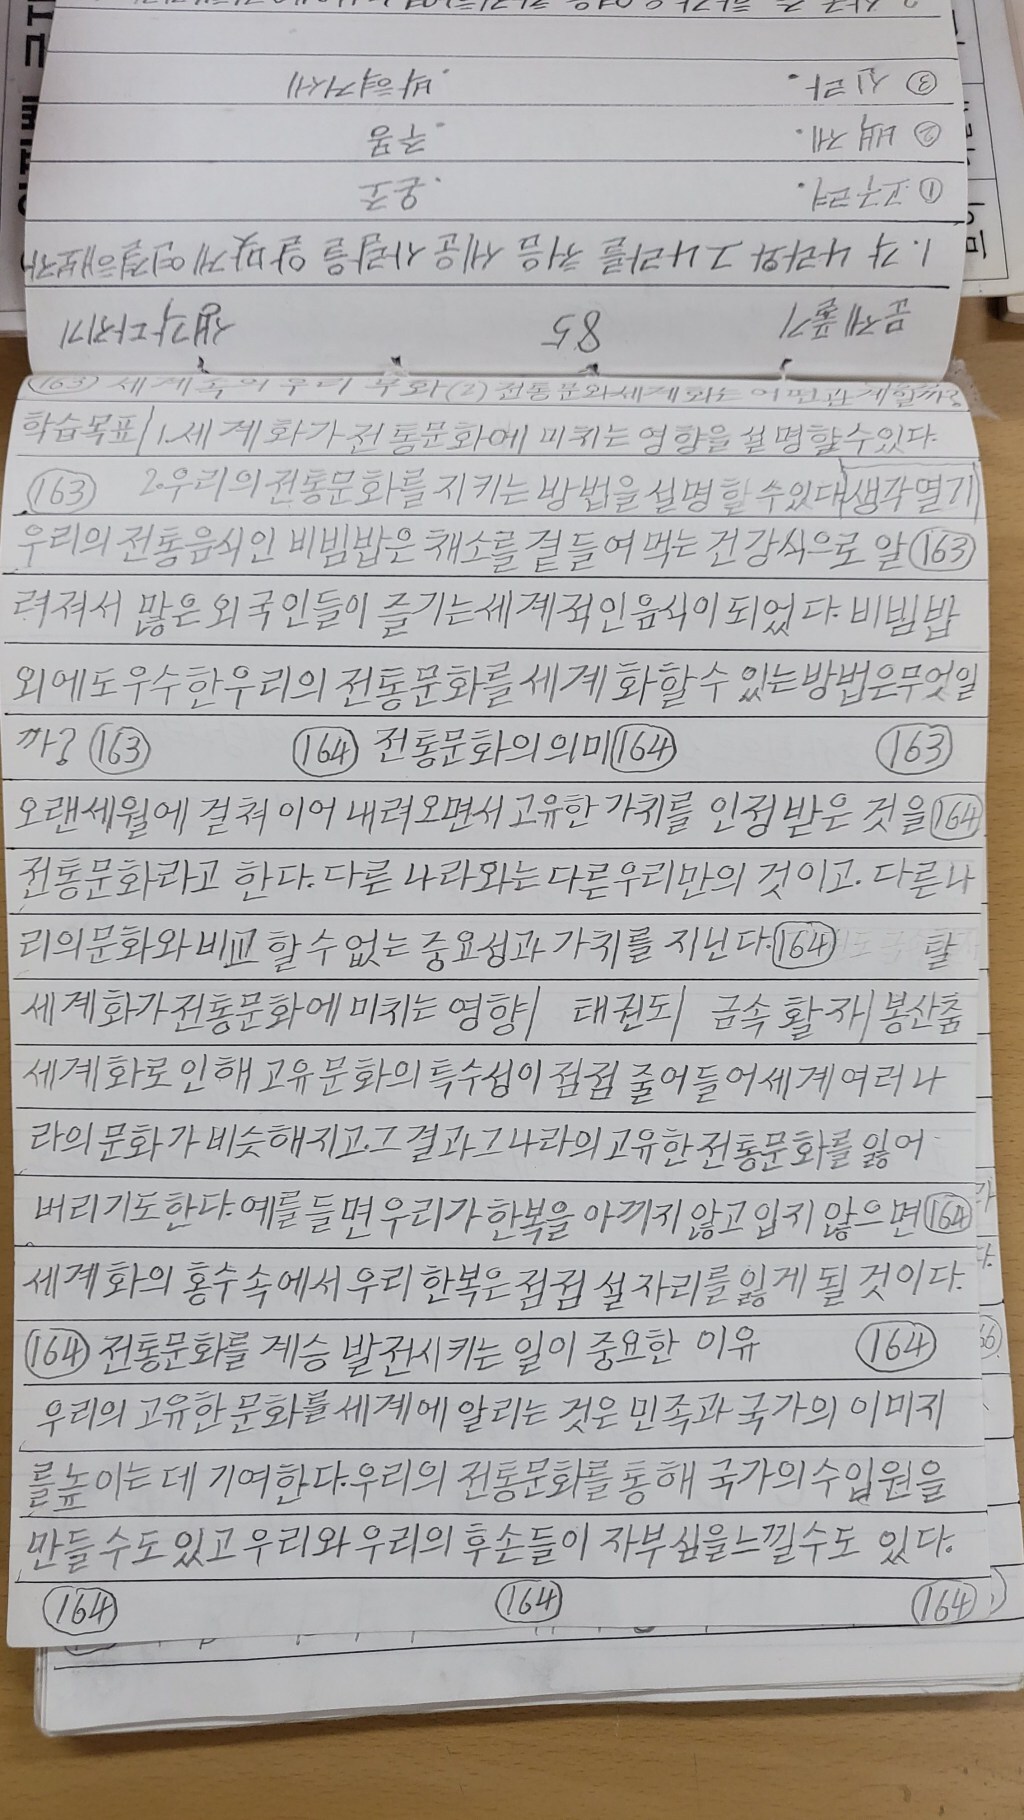 (163) 세계속의 우리 문화 (2) 전통문화와세계화는 어떤관계일까?
학습목표| 1.세계화가 전통문화에 미치는 영향을 설명할수있다.
(163) 2.우리의전통문화를 지키는 방법을 설명할수있다|생각열기|
우리의 전통음식인 비빔밥은 채소를 곁들여 먹는 건강식으로 알(163)
려져서 많은 외국인들이 즐기는세계적인음식이 되었다. 비빔밥
외에도우수한우리의 전통문화를 세계화할수 있는방법은무엇일
까? (163) (164) 전통문화의 의미(164) (163)
오랜세월에 걸쳐 이어 내려오면서 고유한 가치를 인정받은 것을(164)
전통문화라고 한다. 다른 나라와는 다른우리만의 것이고. 다른나
리의문화와 비교할수없는 중요성과 가치를 지닌다.(164) 탈
세계화가전통문화에 미치는 영향| 태권도| 금속활자|봉산춤
세계화로인해 고유문화의 특수성이 점점 줄어들어세계여러나
라의 문화가 비슷해지고.그결과그나라의고유한전통문화를 잃어
버리기도한다. 예를들면 우리가 한복을 아끼지 않고 입지 않으면(164)
세계화의 홍수 속에서 우리 한복은 점점 설 자리를 잃게 될 것이다.
(164) 전통문화를 계승 발전시키는 일이 중요한 이유 (164)
우리의 고유한문화를 세계에 알리는 것은 민족과 국가의 이미지
를높이는데 기여한다.우리의 전통문화를통해 국가의수입원을
만들수도 있고 우리와우리의 후손들이 자부심을느낄수도 있다.
(164) (164) (164)
문제풀기 85 생각다지기
1. 각 나라와 그나라를 처음 세운사람을 알맞게 연결해보자
① 고구려. .온조
② 백제. .주몽
③ 신라. .박혁거세